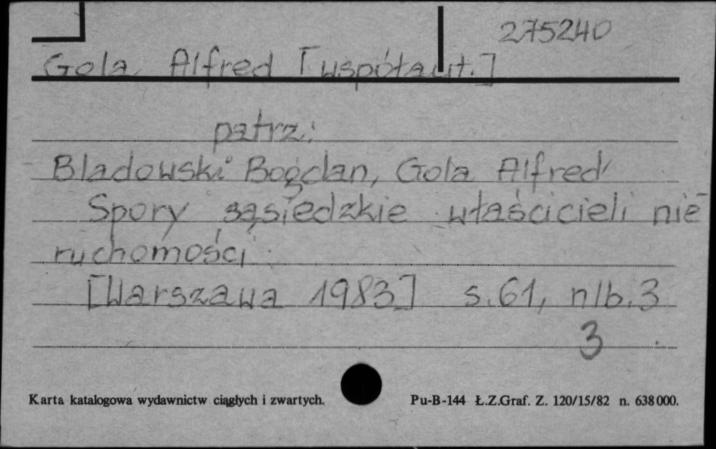 275240
Gola, Alfred [współaut.]
patrz:
Bladowski Bogdan, Gola Alfred
Spory sąsiedzkie właścicieli nie
ruchomości
[Warszawa 1983] s.61, nlb.3
3
Karta katalogowa wydawnictw ciągłych i zwartych. Pu-B-144 Ł.Z.Graf. Z. 120/15/82 n. 638 000.